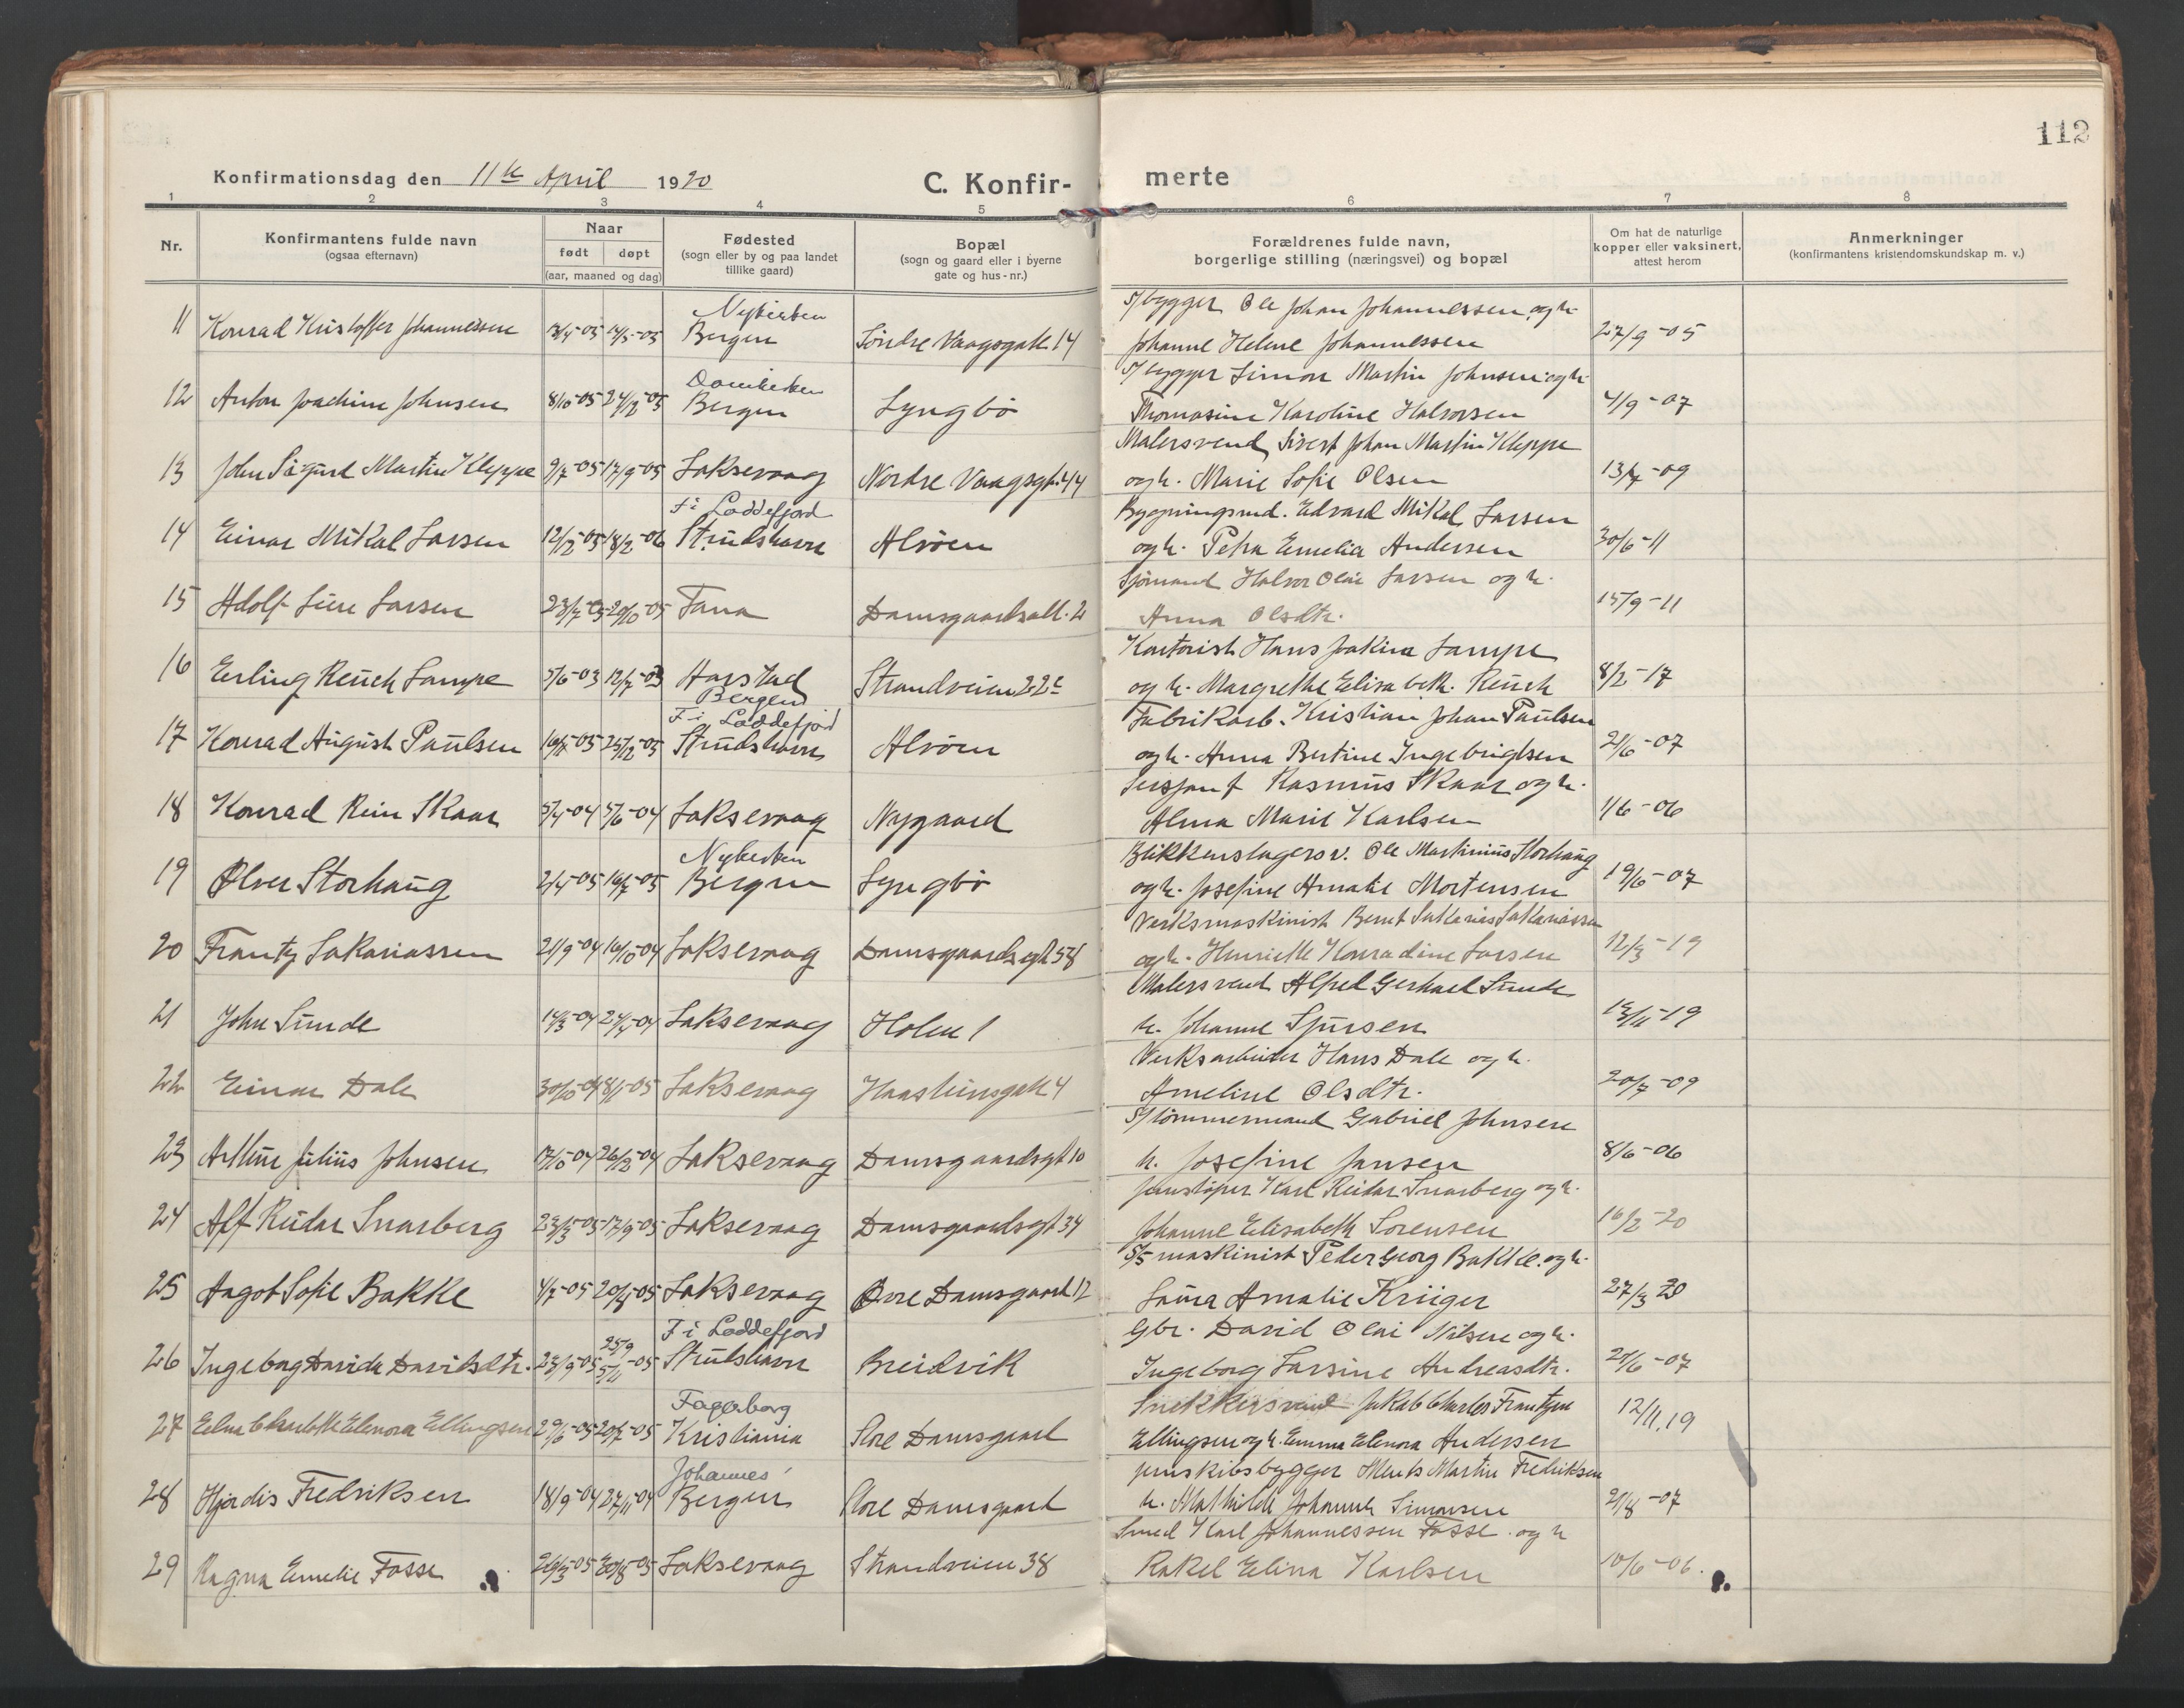 112
Konfirmationsdag den 11te April 1920
C. Konfir-merte
1 2 3 4 5 6 7 8
Nr.
Konfirmantens fulde navn
(ogsaa efternavn)
Naar
født døpt
(aar, maaned og dag)
Fødested
(sogn eller by og paa landet
tillike gaard)
Bopæl
(sogn og gaard eller i byerne
gate og hus-nr.)
Forældrenes fulde navn,
borgerlige stilling (næringsvei) og bopæl
Om hat de naturlige
kopper eller vaksinert,
attest herom
Anmerkninger
(konfirmantens kristendomskundskap m. v.)
Nykirken S/bygger Ole Johan Johannessen og h.
11 Konrad Kristoffer Johannessen Bergen Søndre Vaagsgate 14 Johanne Helene Johannessen 27/9-05
Domkirken S/bygger Simon Martin Johnsen og h.
12 Anton Joachim Johnsen 8/10-05 24/12-05 Bergen Lyngbø Thomasine Karoline Halvorsen 4/9-07
Malersvend Sivert Johan Martin Kleppe
13 John Sigurd Martin Kleppe 9/7-05 17/9-05 Laksevaag Nordre Vaagsgt. 44 og h. Marie Sofie Olsen 13/7-09
F i Loddefjord Bygningssnd. Edvard Mikal Larsen
14 Einar Mikal Larsen 12/12-05 18/2-06 Strudshavn Alvøen og h. Petra Emelia Andersen 30/6-11
Sjømand Halvor Olai Larsen og h.
15 Adolf Larsen 23/7-05 29/10-05 Fana Damsgaardsall. 2 Anna Olsdtr. 15/9-11
Kontorist Hans Joakim Lampe
16 Erling Reusch Lampe 5/6-03 12/7-03 Harstad Strandveien 22c og h. Margrethe Elisabeth Reusch 8/2-17
Bergen
F i Loddefjord Fabrikarb. Kristian Johan Paulsen
17 Konrad August Paulsen 25/12-05 Strudshavn Alvøen og h. Anna Bertine Ingebrigtsen 21/6-07
Sersjant Rasmus Skaar og h.
18 Konrad Rein Skaar 5/4-04 5/6-04 Laksevaag Nygaard Alma Marie Karlsen 1/6-06
Nykirken Blikkenslagersv. Ole Martinius Storhaug
19 Olver Storhaug 2/4-05 16/7-05 Bergen Lyngbø og h. Josefine Amalie Mortensen 19/6-07
Verksmaskinist Bernt Sakarias Sakariassen
20 Frantz Sakariassen 21/9-04 16/10-04 Laksevaag Damsgaardsgt 58 og h. Henriette Konradine Larsen 12/3-19
Malersvend Alfred Gerhard Sunde
21 John Sunde 14/3-04 24/4-04 Laksevaag Holen 1 h. Johanne Sjursen 13/11-19
Verksarbeider Hans Dale og h.
22 Einar Dale 30/10-04 8/1-05 Laksevaag Haasteinsgate 4 Ameline Olsdtr. 20/7-09
S/tømmermand Gabriel Johnsen
23 Arthur Julius Johnsen 17/10-04 26/12-04 Laksevaag Damsgaardsgt 10 h. Josefine Jansen 8/6-06
Jernstøper Karl Reidar Snarberg og h.
24 Alf Reidar Snarberg 23/3-05 17/9-05 Laksevaag Damsgaardsgt 34 Johanne Elisabeth Sorensen 16/2-20
S/s maskinist Peder Georg Bakke og h.
25 Aagot Sofie Bakke 4/7-05 20/8-05 Laksevaag Øvre Damsgaard 12 Laura Amalie Krüger 27/3 20
25/9 F i Loddefjord Gbr. David Olai Nilsen og h.
26 Ingeborg Davida Davidsdtr. 23/9-05 5/11-05 Strudshavn Breidvik Ingeborg Larsine Andreasdtr. 21/6-07
Fagerborg Snekkersvend Jakob Charles Frantzen
27 Elna Charlotte Elenora Ellingsen 29/6-05 20/7-05 Kristiania Store Damsgaard Ellingsen og h. Emma Elenora Andersen 12/11.19
Johannes Jernskibsbygger Ments Martin Fredriksen
28 Hjørdis Fredriksen 18/9-04 27/11-04 Bergen Store Damsgaard h. Mathilde Johanne Simonsen 21/8-07
Smed Karl Johannessen Fosse og h
29 Ragna Emelie Fosse 26/3-05 20/8-05 Laksevaag Strandveien 38 Rakel Elina Karlsen 10/6-06.